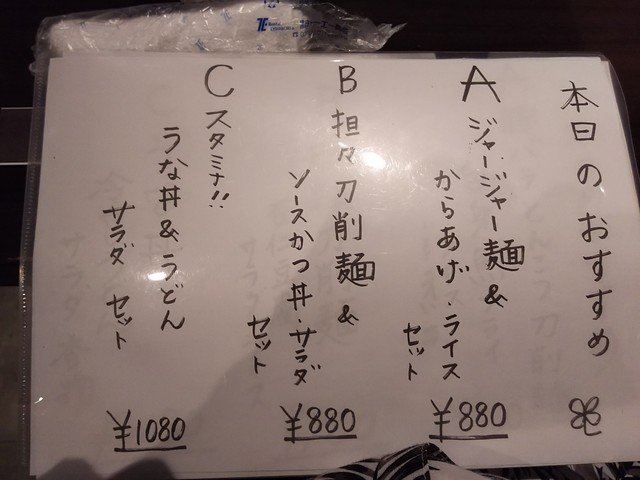 本日のおすすめ
A
ジャージャー麺&
からあげ・ライス
セット
¥880
B
担々刀削麺&
ソースかつ丼・サラダ
セット
¥880
C
スタミナ!!
うな丼&うどん
サラダ セット
¥1080